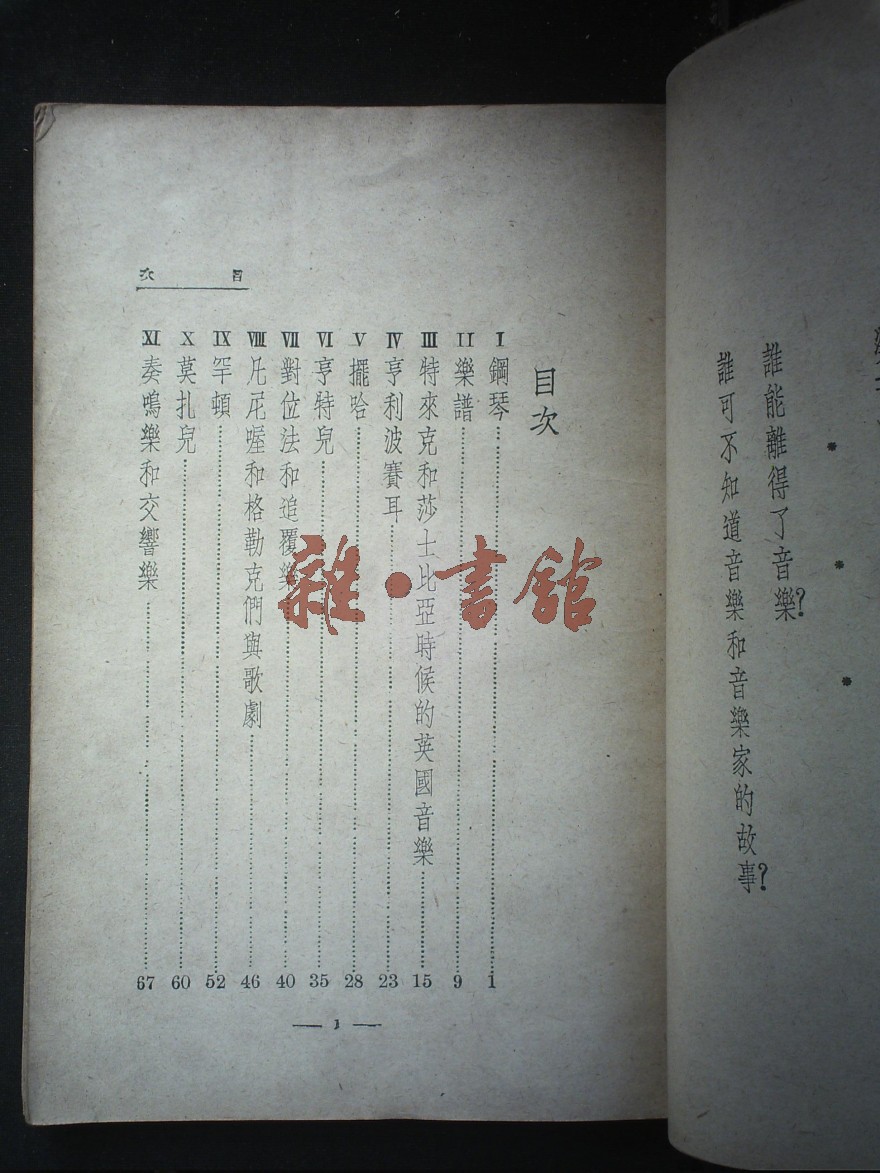 誰能離得了音樂？
誰可不知道音樂和音樂家的故事？
目次
目次
I 鋼琴 1
II 樂譜 9
III 特來克和莎士比亞時候的英國音樂 15
IV 亨利波賽耳 23
V 擺哈 28
VI 亨特兒 35
VII 對位法和追覆樂 40
VIII 凡尼喔和格勒克們與歌劇 46
IX 罕頓 52
X 莫扎兒 60
XI 奏鳴樂和交響樂 67
— 1 —
雜·書館